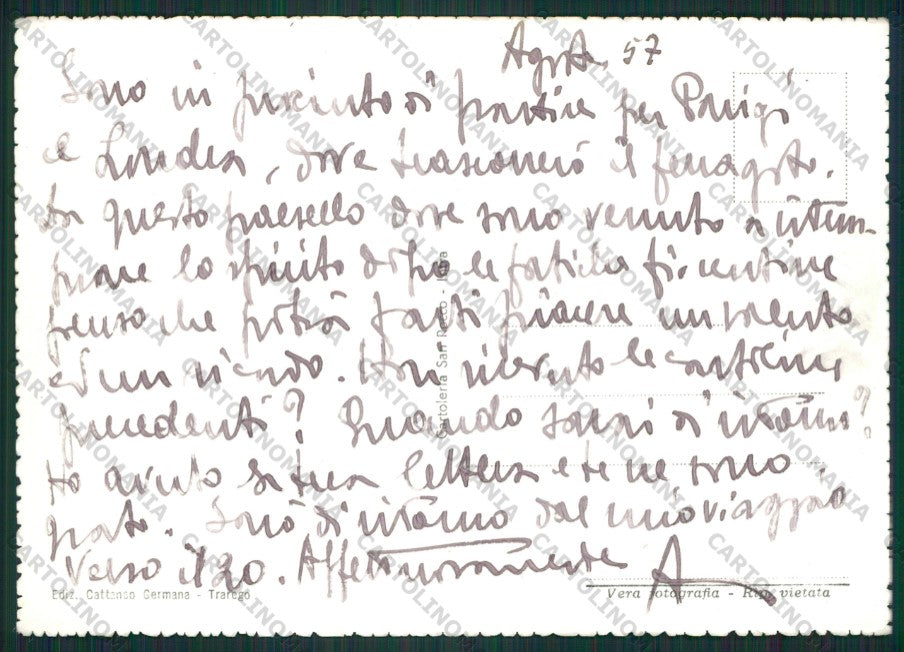 Agosto 57
Sono in procinto di partire per Parigi
e Londra, dove trascorrerò il ferragosto.
Da questo paesello dove sono venuto a ritem-
prare lo spirito dopo le fatiche fiorentine
penso che potrà farti piacere un saluto
ed un ricordo. Hai ricevuto le cartoline
precedenti? Quando sarai di ritorno?
Ho avuto la tua lettera e te ne sono
grato. Sarò di ritorno dal mio viaggio
verso il 20. Affettuosamente A
Cartoleria San Rocco -
Ediz. Cattaneo Germana - Trarego
Vera fotografia - Rip. vietata
CARTOLINOMANIA